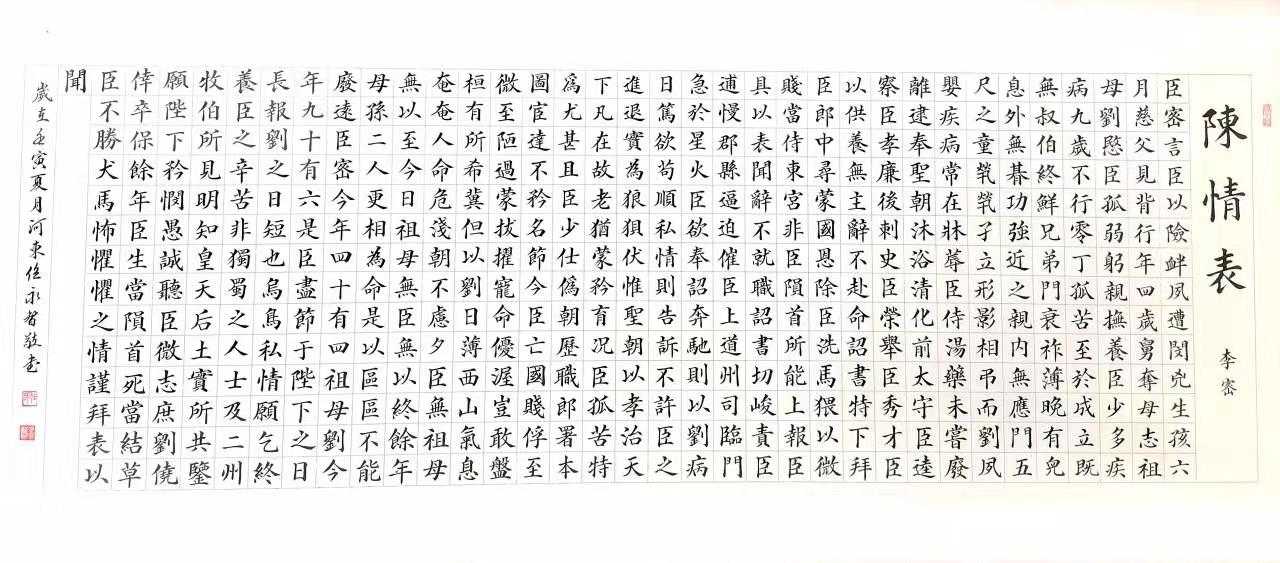 陳情表
李密
臣密言臣以險衅夙遭閔兇生孩六
月慈父見背行年四歲舅奪母志祖
母劉愍臣孤弱躬親撫養臣少多疾
病九歲不行零丁孤苦至於成立既
無叔伯終鮮兄弟門衰祚薄晚有兒
息外無朞功強近之親內無應門五
尺之童煢煢孑立形影相弔而劉夙
嬰疾病常在牀蓐臣侍湯藥未嘗廢
離逮奉聖朝沐浴清化前太守臣逵
察臣孝廉後刺史臣榮舉臣秀才臣
以供養無主辭不赴命詔書特下拜
臣郎中尋蒙國恩除臣洗馬猥以微
賤當侍東宮非臣隕首所能上報臣
具以表聞辭不就職詔書切峻責臣
逋慢郡縣逼迫催臣上道州司臨門
急於星火臣欲奉詔奔馳則以劉病
日篤欲苟順私情則告訴不許臣之
進退實為狼狽伏惟聖朝以孝治天
下凡在故老猶蒙矜育况臣孤苦特
爲尤甚且臣少仕僞朝歷職郎署本
圖宦達不矜名節今臣亡國賤俘至
微至陋過蒙拔擢寵命優渥豈敢盤
桓有所希冀但以劉日薄西山氣息
奄奄人命危淺朝不慮夕臣無祖母
無以至今日祖母無臣無以終餘年
母孫二人更相為命是以區區不能
廢遠臣密今年四十有四祖母劉今
年九十有六是臣盡節于陛下之日
長報劉之日短也烏鳥私情願乞終
養臣之辛苦非獨蜀之人士及二州
牧伯所見明知皇天后土實所共鑒
願陛下矜憫愚誠聽臣微志庶劉僥
倖卒保餘年臣生當隕首死當結草
臣不勝犬馬怖懼懼之情謹拜表以
聞
歲在壬寅夏月河東任永智敬書